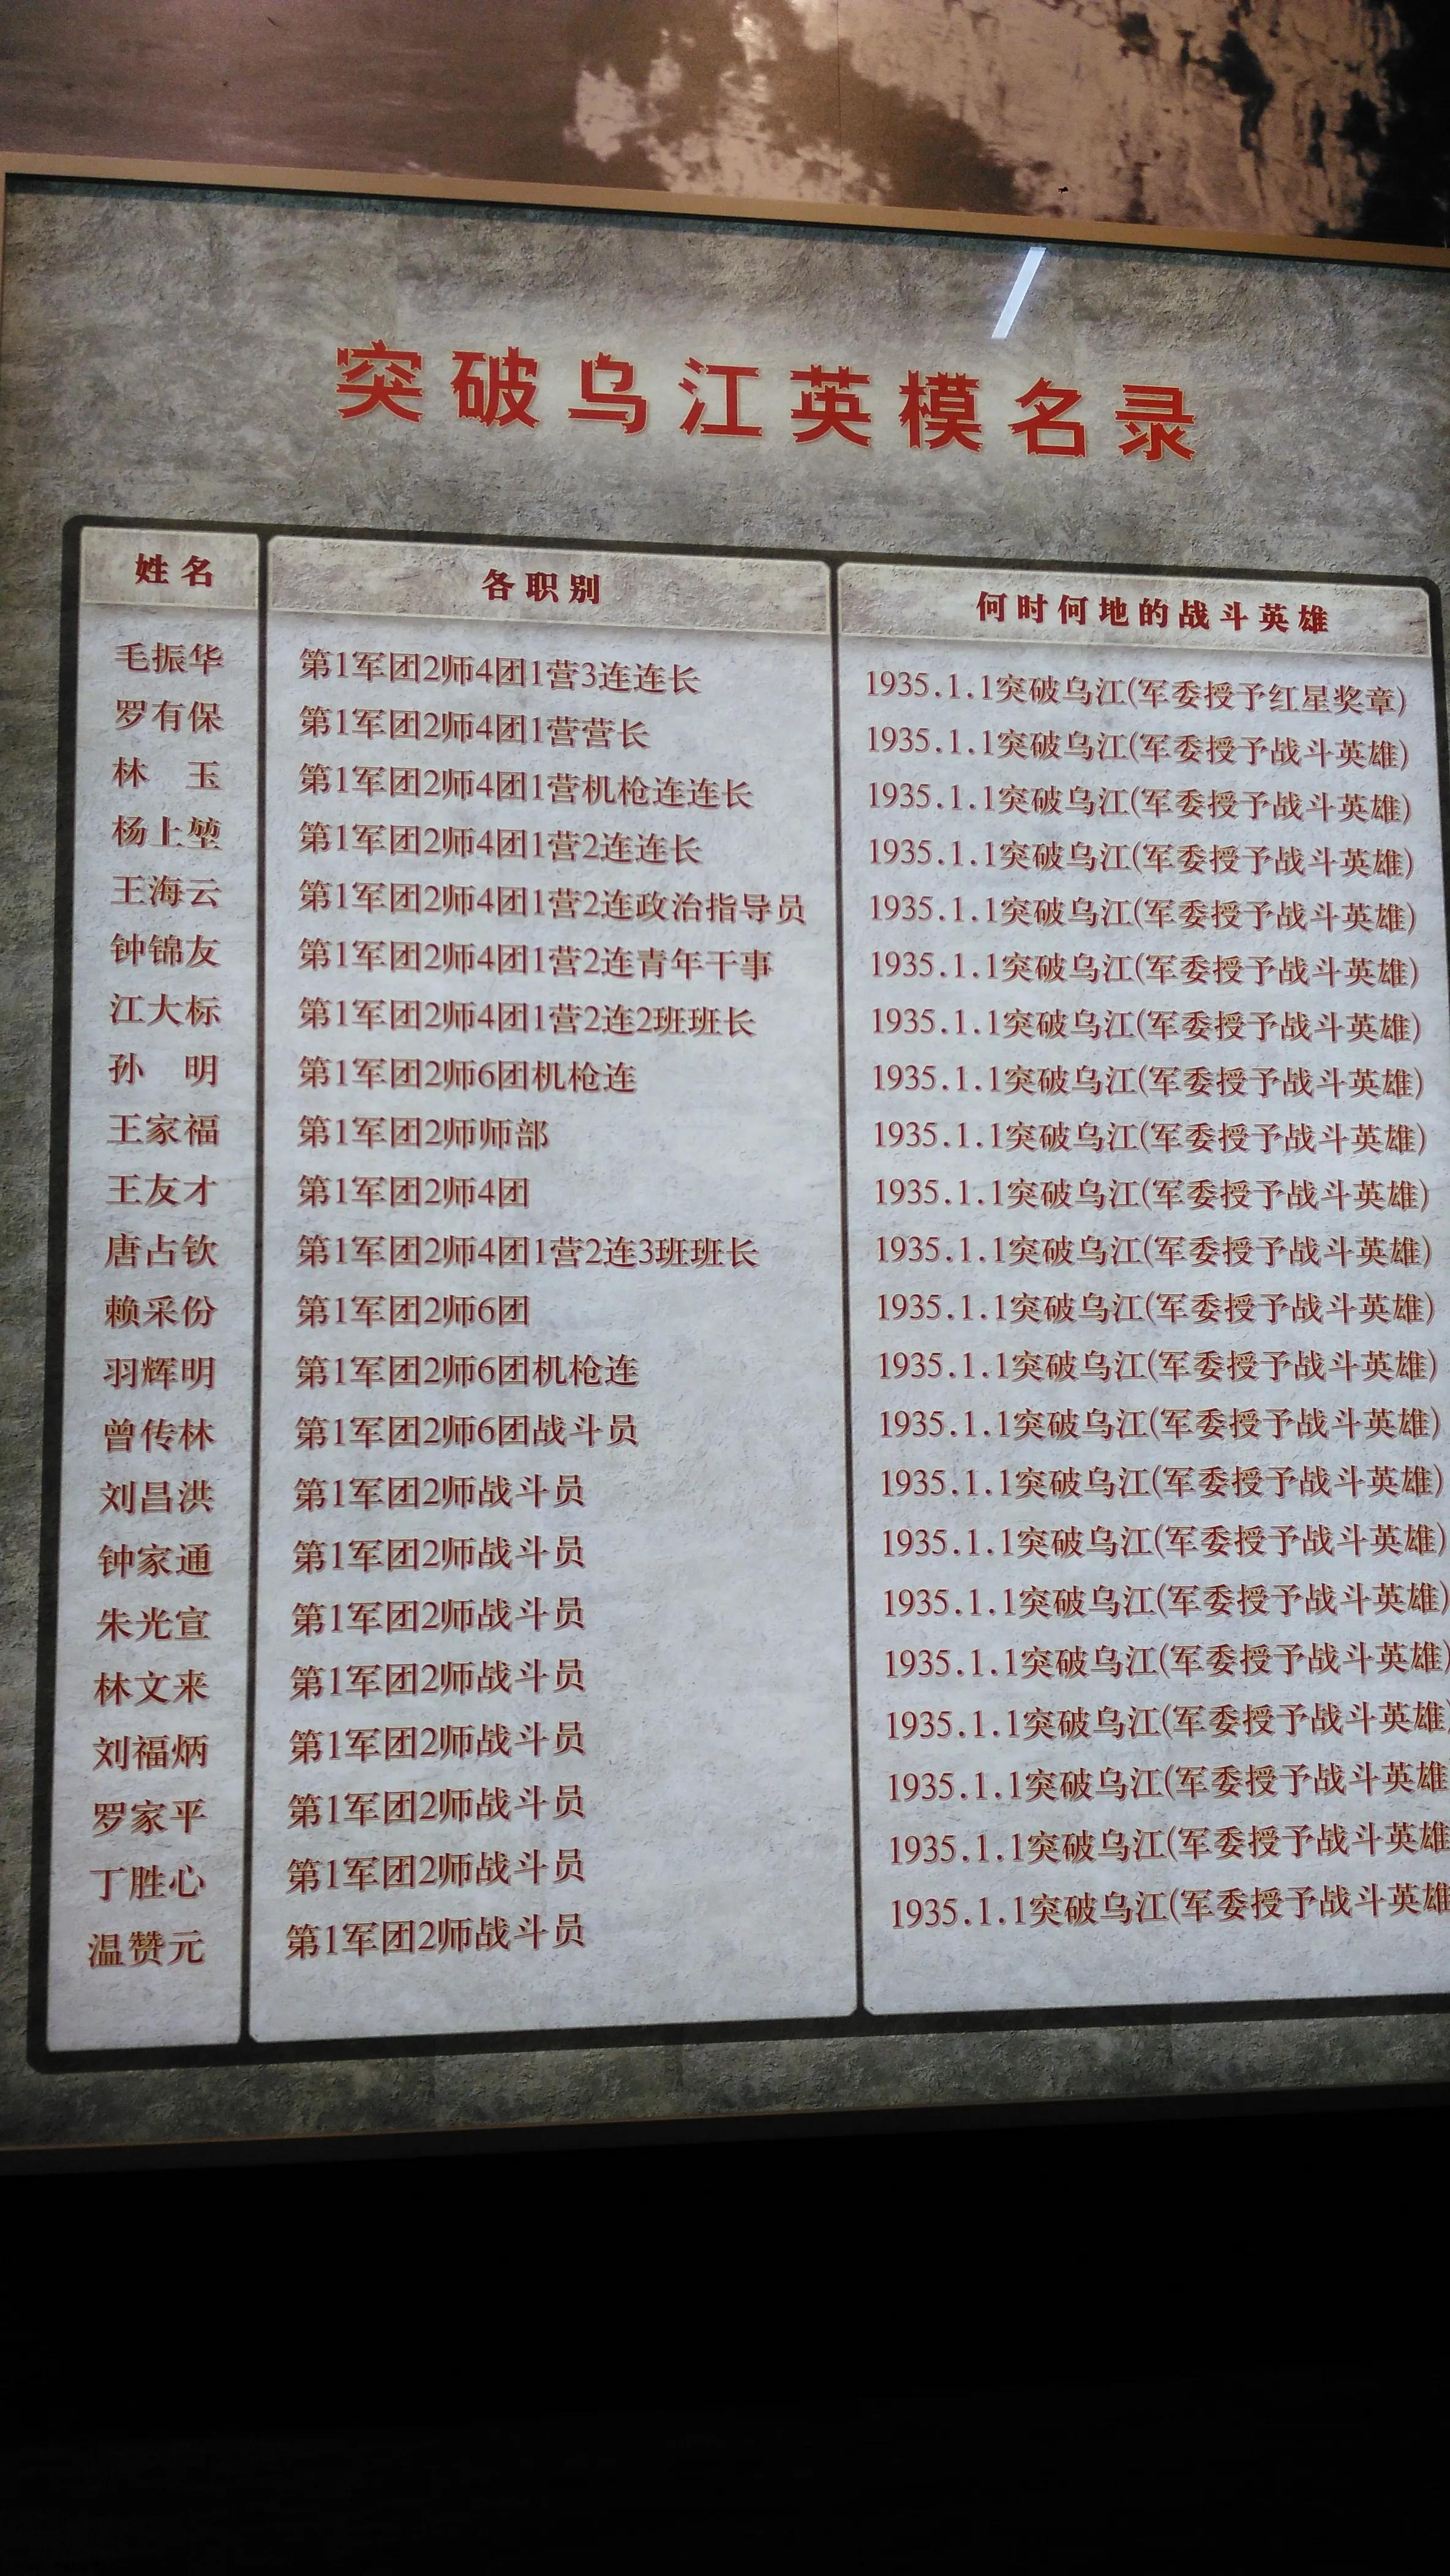 突破乌江英模名录
姓名 各职别 何时何地的战斗英雄
毛振华 第1军团2师4团1营3连连长 1935.1.1突破乌江(军委授予红星奖章)
罗有保 第1军团2师4团1营营长 1935.1.1突破乌江(军委授予战斗英雄)
林 玉 第1军团2师4团1营机枪连连长 1935.1.1突破乌江(军委授予战斗英雄)
杨上堃 第1军团2师4团1营2连连长 1935.1.1突破乌江(军委授予战斗英雄)
王海云 第1军团2师4团1营2连政治指导员 1935.1.1突破乌江(军委授予战斗英雄)
钟锦友 第1军团2师4团1营2连青年干事 1935.1.1突破乌江(军委授予战斗英雄)
江大标 第1军团2师4团1营2连2班班长 1935.1.1突破乌江(军委授予战斗英雄)
孙 明 第1军团2师6团机枪连 1935.1.1突破乌江(军委授予战斗英雄)
王家福 第1军团2师师部 1935.1.1突破乌江(军委授予战斗英雄)
王友才 第1军团2师4团 1935.1.1突破乌江(军委授予战斗英雄)
唐占钦 第1军团2师4团1营2连3班班长 1935.1.1突破乌江(军委授予战斗英雄)
赖采份 第1军团2师6团 1935.1.1突破乌江(军委授予战斗英雄)
羽辉明 第1军团2师6团机枪连 1935.1.1突破乌江(军委授予战斗英雄)
曾传林 第1军团2师6团战斗员 1935.1.1突破乌江(军委授予战斗英雄)
刘昌洪 第1军团2师战斗员 1935.1.1突破乌江(军委授予战斗英雄)
钟家通 第1军团2师战斗员 1935.1.1突破乌江(军委授予战斗英雄)
朱光宣 第1军团2师战斗员 1935.1.1突破乌江(军委授予战斗英雄)
林文来 第1军团2师战斗员 1935.1.1突破乌江(军委授予战斗英雄)
刘福炳 第1军团2师战斗员 1935.1.1突破乌江(军委授予战斗英雄)
罗家平 第1军团2师战斗员 1935.1.1突破乌江(军委授予战斗英雄
丁胜心 第1军团2师战斗员 1935.1.1突破乌江(军委授予战斗英雄
温赞元 第1军团2师战斗员 1935.1.1突破乌江(军委授予战斗英雄